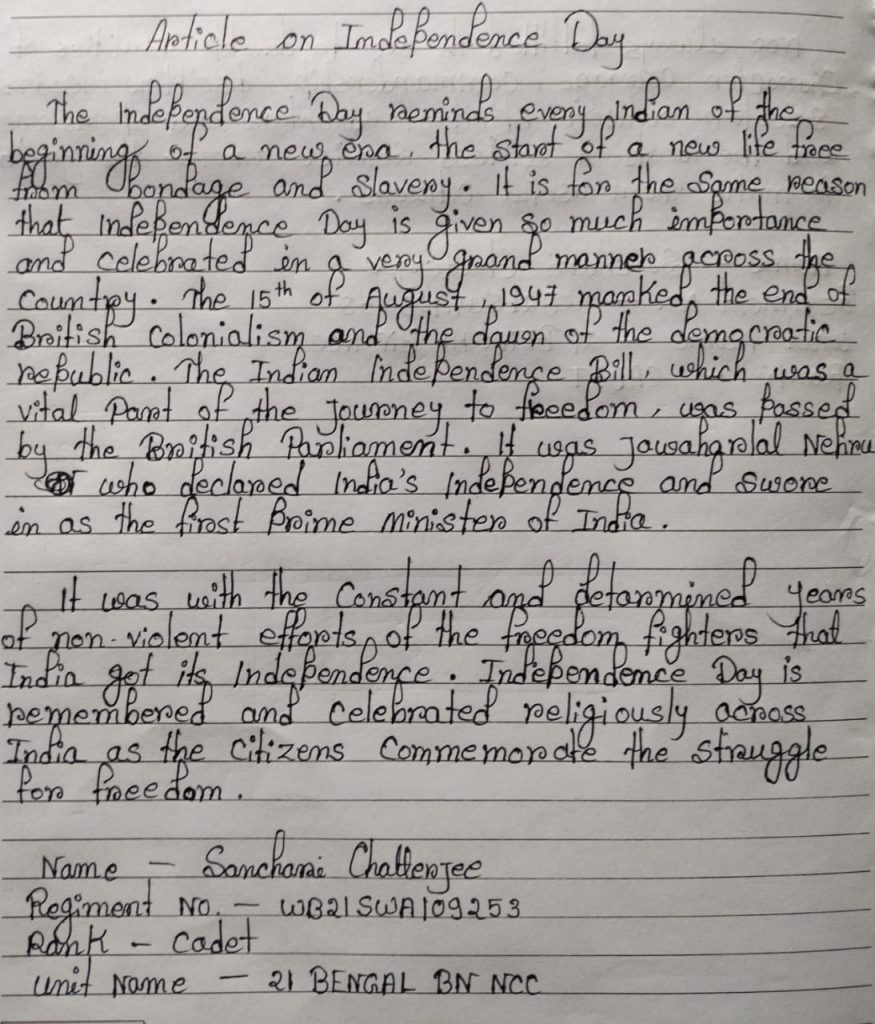 Article on Independence Day
The Independence Day reminds every Indian of the
beginning of a new era, the start of a new life free
from bondage and slavery. It is for the same reason
that Independence Day is given so much importance
and celebrated in a very grand manner across the
country. The 15th of August, 1947 marked the end of
British colonialism and the dawn of the democratic
republic. The Indian Independence Bill, which was a
vital Part of the journey to freedom, was passed
by the British Parliament. It was Jawaharlal Nehru
who declared India's Independence and swore
in as the first Prime Minister of India.
It was with the constant and detarmined years
of non-violent efforts of the freedom fighters that
India got its Independence. Independence Day is
remembered and celebrated religiously across
India as the citizens commemorate the struggle
for freedom.
Name - Sanchari Chatterjee
Regiment No. - WB21SWA109253
Rank - Cadet
Unit Name - 21 BENGAL BN NCC